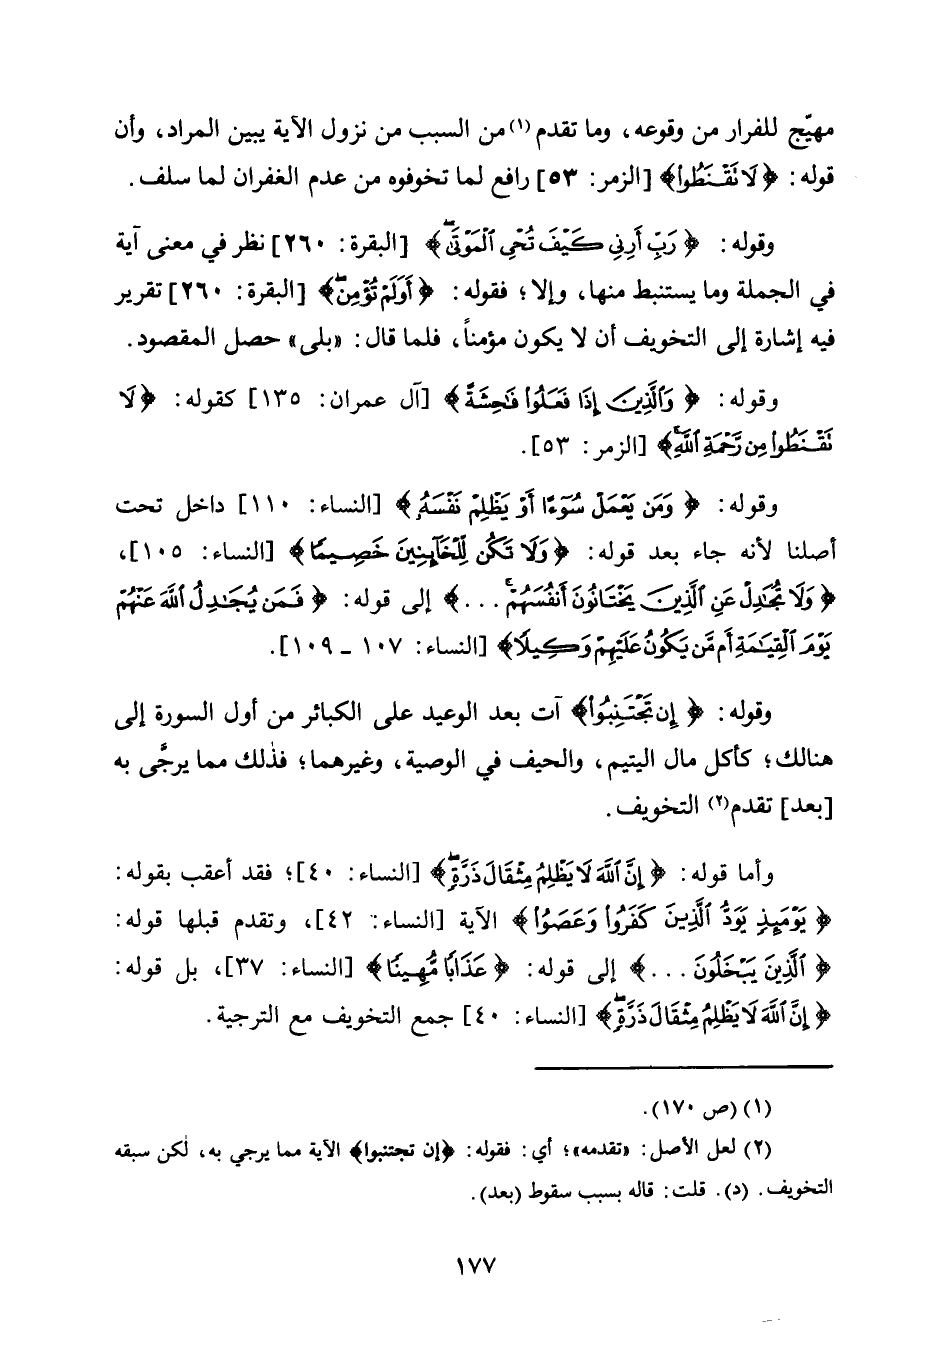 مهيّج للفرار من وقوعه، وما تقدم(١) من السبب من نزول الآية يبين المراد، وأن
قوله: ﴿لَا تَقْنَطُوا۟﴾ [الزمر: ٥٣] رافع لما تخوفوه من عدم الغفران لما سلف.
وقوله: ﴿رَبِّ أَرِنِى كَيْفَ تُحْىِ ٱلْمَوْتَىٰ﴾ [البقرة: ٢٦٠] نظر في معنى آية
في الجملة وما يستنبط منها، وإلا؛ فقوله: ﴿أَوَلَمْ تُؤْمِن﴾ [البقرة: ٢٦٠] تقرير
فيه إشارة إلى التخويف أن لا يكون مؤمناً، فلما قال: «بلى» حصل المقصود.
وقوله: ﴿وَٱلَّذِينَ إِذَا فَعَلُوا۟ فَٰحِشَةً﴾ [آل عمران: ١٣٥] كقوله: ﴿لَا
تَقْنَطُوا۟ مِن رَّحْمَةِ ٱللَّهِ﴾ [الزمر: ٥٣].
وقوله: ﴿وَمَن يَعْمَلْ سُوٓءًا أَوْ يَظْلِمْ نَفْسَهُۥ﴾ [النساء: ١١٠] داخل تحت
أصلنا لأنه جاء بعد قوله: ﴿وَلَا تَكُن لِّلْخَآئِنِينَ خَصِيمًا﴾ [النساء: ١٠٥]،
﴿وَلَا تُجَٰدِلْ عَنِ ٱلَّذِينَ يَخْتَانُونَ أَنفُسَهُمْ ...﴾ إلى قوله: ﴿فَمَن يُجَٰدِلُ ٱللَّهَ عَنْهُمْ
يَوْمَ ٱلْقِيَٰمَةِ أَم مَّن يَكُونُ عَلَيْهِمْ وَكِيلًا﴾ [النساء: ١٠٧ ـ ١٠٩].
وقوله: ﴿إِن تَجْتَنِبُوا۟﴾ آت بعد الوعيد على الكبائر من أول السورة إلى
هنالك؛ كأكل مال اليتيم، والحيف في الوصية، وغيرهما؛ فذٰلك مما يرجَّى به
[بعد] تقدم(٢) التخويف.
وأما قوله: ﴿إِنَّ ٱللَّهَ لَا يَظْلِمُ مِثْقَالَ ذَرَّةٍ﴾ [النساء: ٤٠]؛ فقد أعقب بقوله:
﴿يَوْمَئِذٍ يَوَدُّ ٱلَّذِينَ كَفَرُوا۟ وَعَصَوُا۟﴾ الآية [النساء: ٤٢]، وتقدم قبلها قوله:
﴿ٱلَّذِينَ يَبْخَلُونَ ...﴾ إلى قوله: ﴿عَذَابًا مُّهِينًا﴾ [النساء: ٣٧]، بل قوله:
﴿إِنَّ ٱللَّهَ لَا يَظْلِمُ مِثْقَالَ ذَرَّةٍ﴾ [النساء: ٤٠] جمع التخويف مع الترجية.
(١) (ص ١٧٠).
(٢) لعل الأصل: «تقدمه»؛ أي: فقوله: ﴿إن تجتنبوا﴾ الآية مما يرجي به، لٰكن سبقه
التخويف. (د). قلت: قاله بسبب سقوط (بعد).
١٧٧